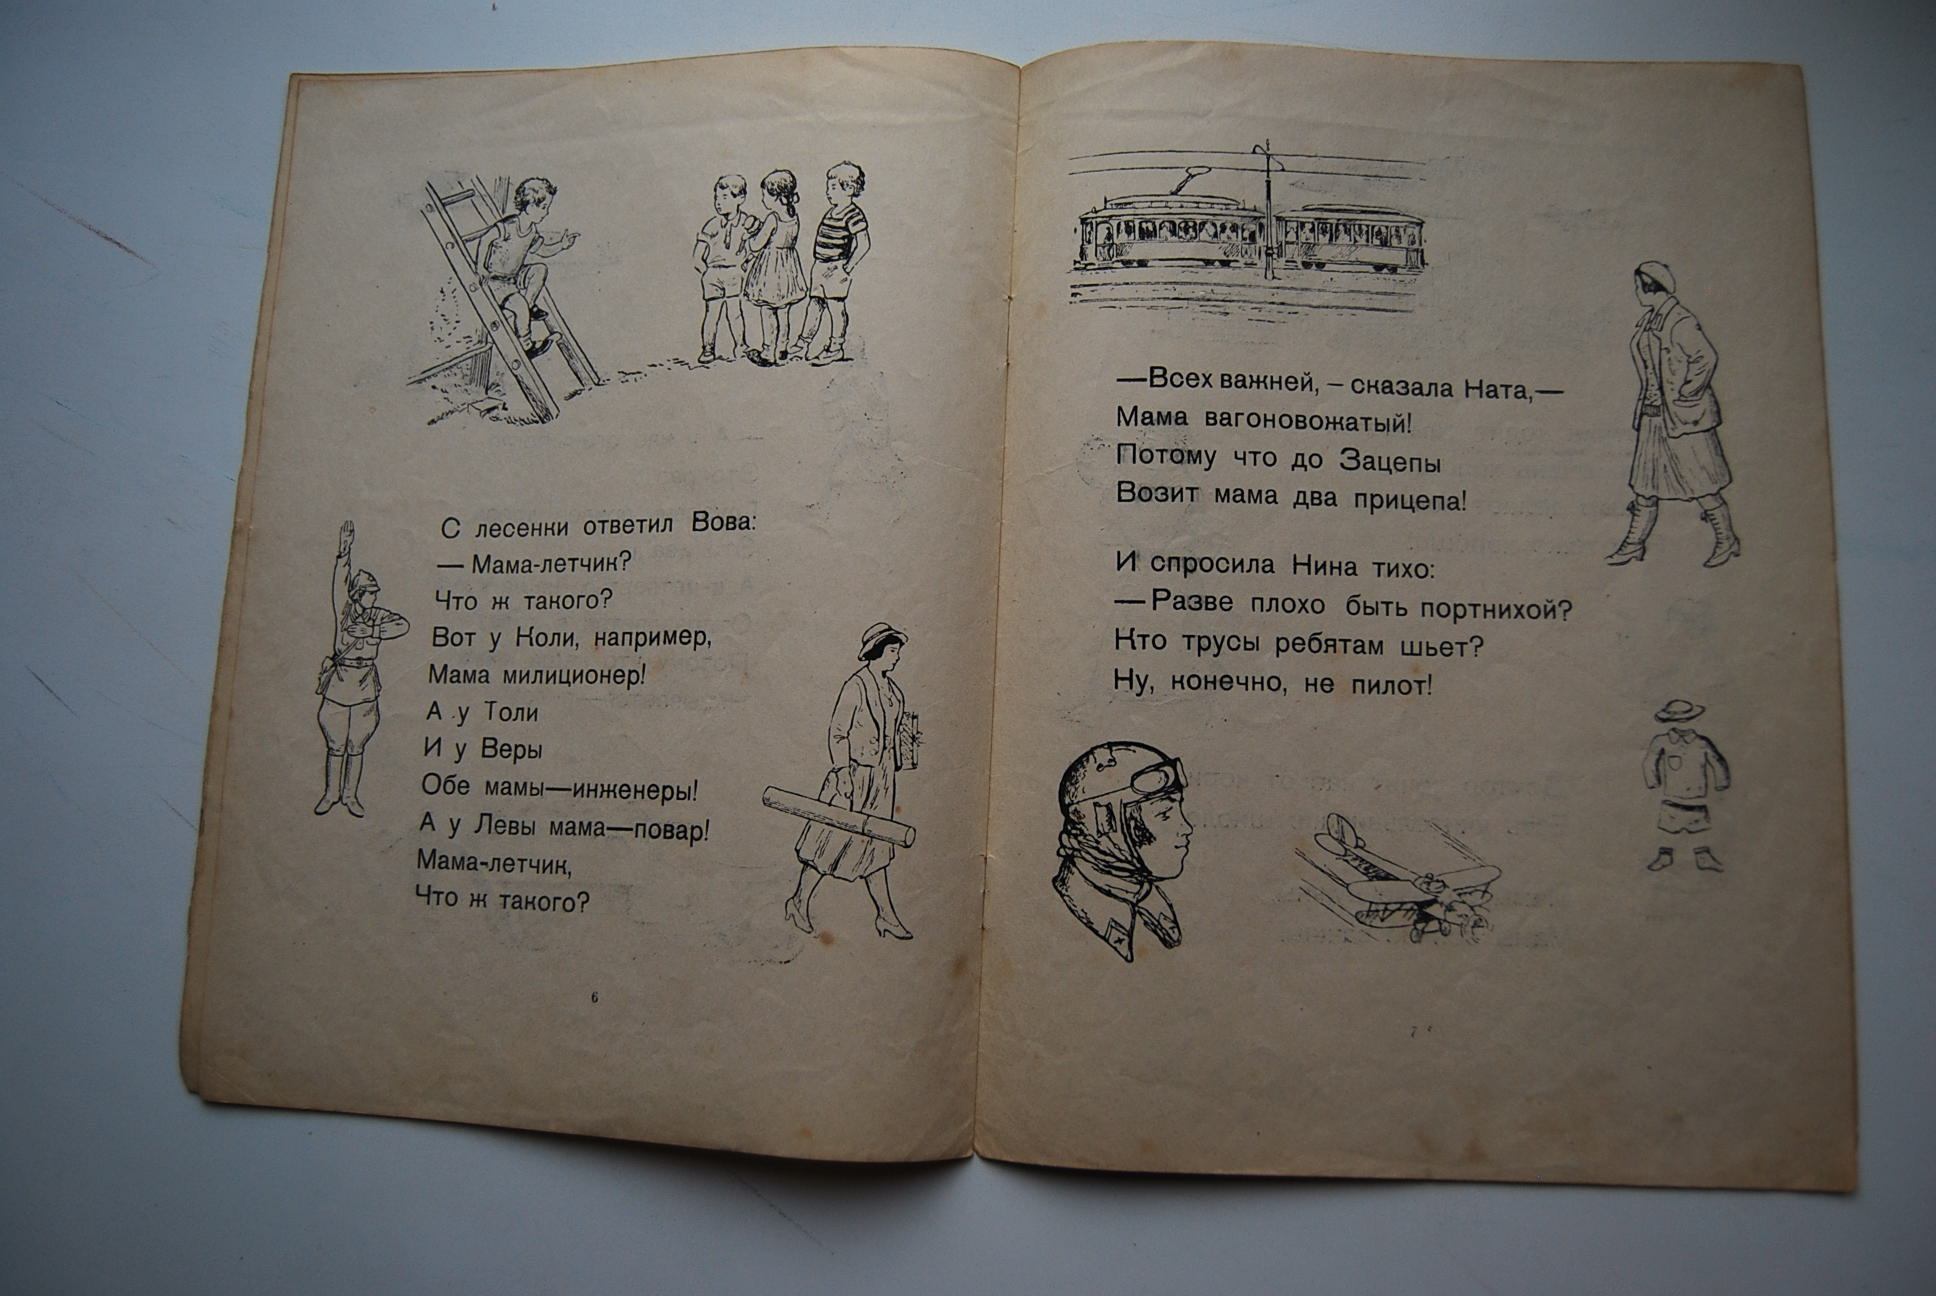 С лесенки ответил Вова:
— Мама-летчик?
Что ж такого?
Вот у Коли, например,
Мама милиционер!
А у Толи
И у Веры
Обе мамы—инженеры!
А у Левы мама—повар!
Мама-летчик,
Что ж такого?
6
—Всех важней, – сказала Ната,—
Мама вагоновожатый!
Потому что до Зацепы
Возит мама два прицепа!
И спросила Нина тихо:
—Разве плохо быть портнихой?
Кто трусы ребятам шьет?
Ну, конечно, не пилот!
7